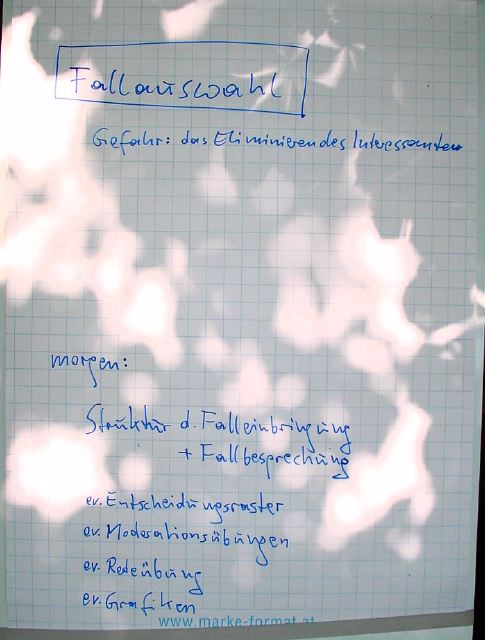 Fallauswahl
Gefahr: das Eliminieren des Interessanten
morgen:
Struktur d. Falleinbringung
+ Fallbesprechung
ev. Entscheidungsraster
ev. Moderationsübungen
ev. Redeübung
ev. Grafiken
www.marke-format.at